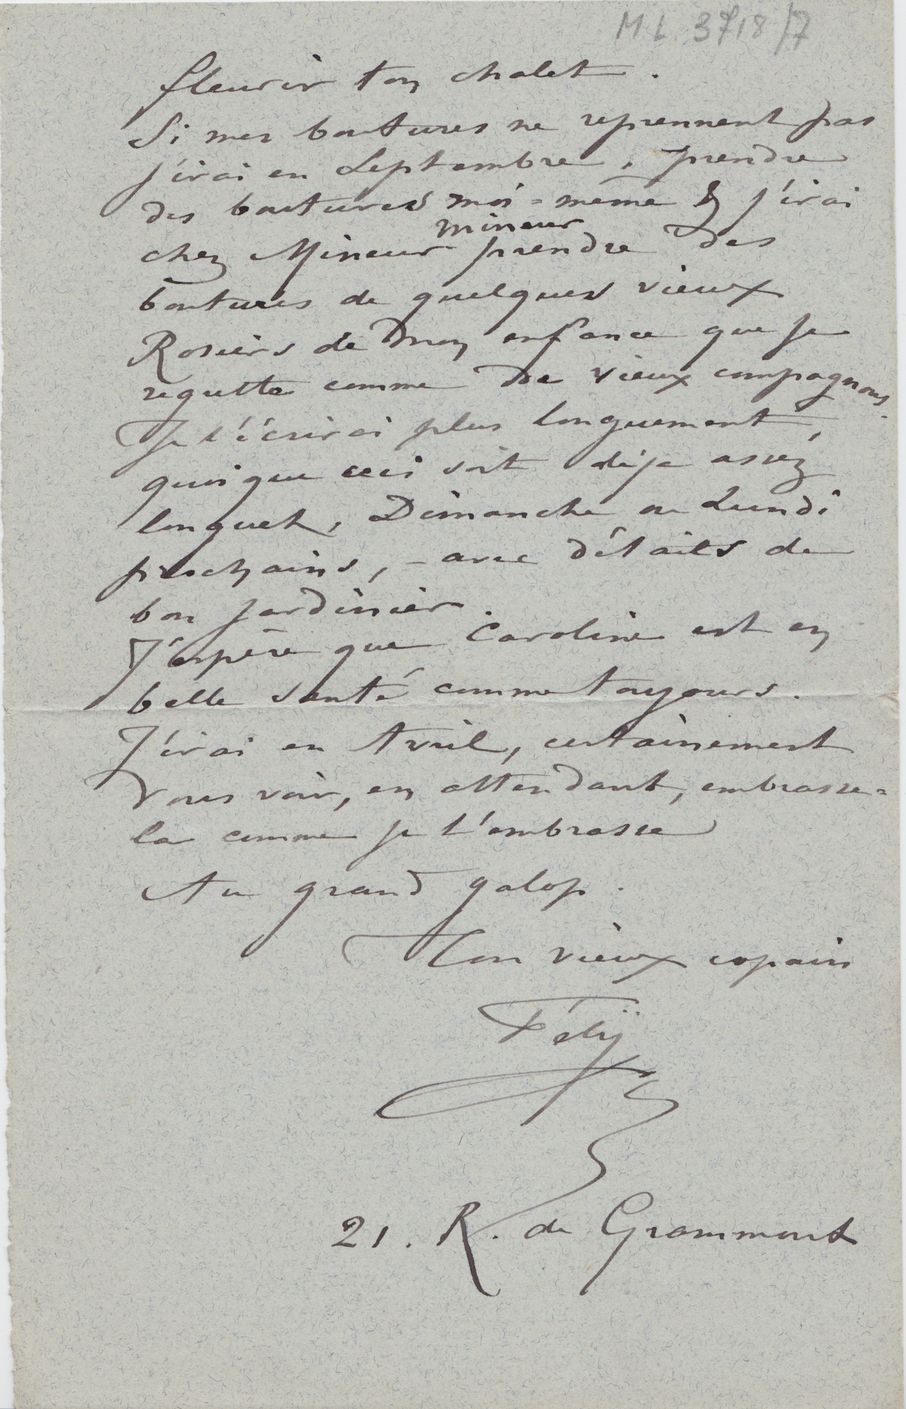 ML 3718/7
fleurir ton chalet.
Si mes boutures ne reprennent pas
j'irai en Septembre, prendre
des boutures moi-même & j'irai
mineur
chez Mineur prendre des
boutures de quelques vieux
Rosiers de mon enfance que je
regrette comme de vieux compagnons.
Je t'écrirai plus longuement,
quoique ceci soit déja assez
longuet, Dimanche ou Lundi
prochains, – avec détails de
bon jardinier.
J'espère que Caroline est en
belle santé comme toujours.
J'irai en Avril, certainement
vous voir, en attendant, embrasse-
la comme je t'embrasse
Au grand galop.
Ton vieux copain
Fély
21. R. de Grammont